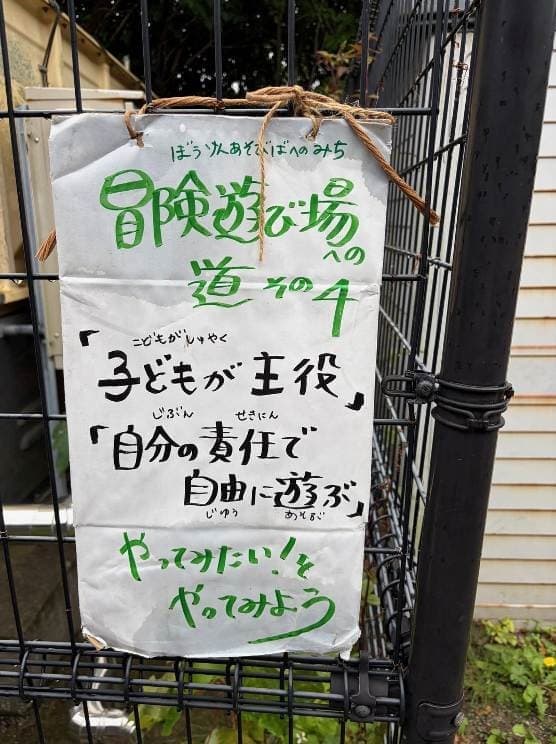 ぼうけんあそびばへのみち
冒険遊び場への
道 その4
こどもがしゅやく
「子どもが主役」
じぶん せきにん
「自分の責任で
自由に遊ぶ」
じゆう あそぶ
やってみたい!を
やってみよう